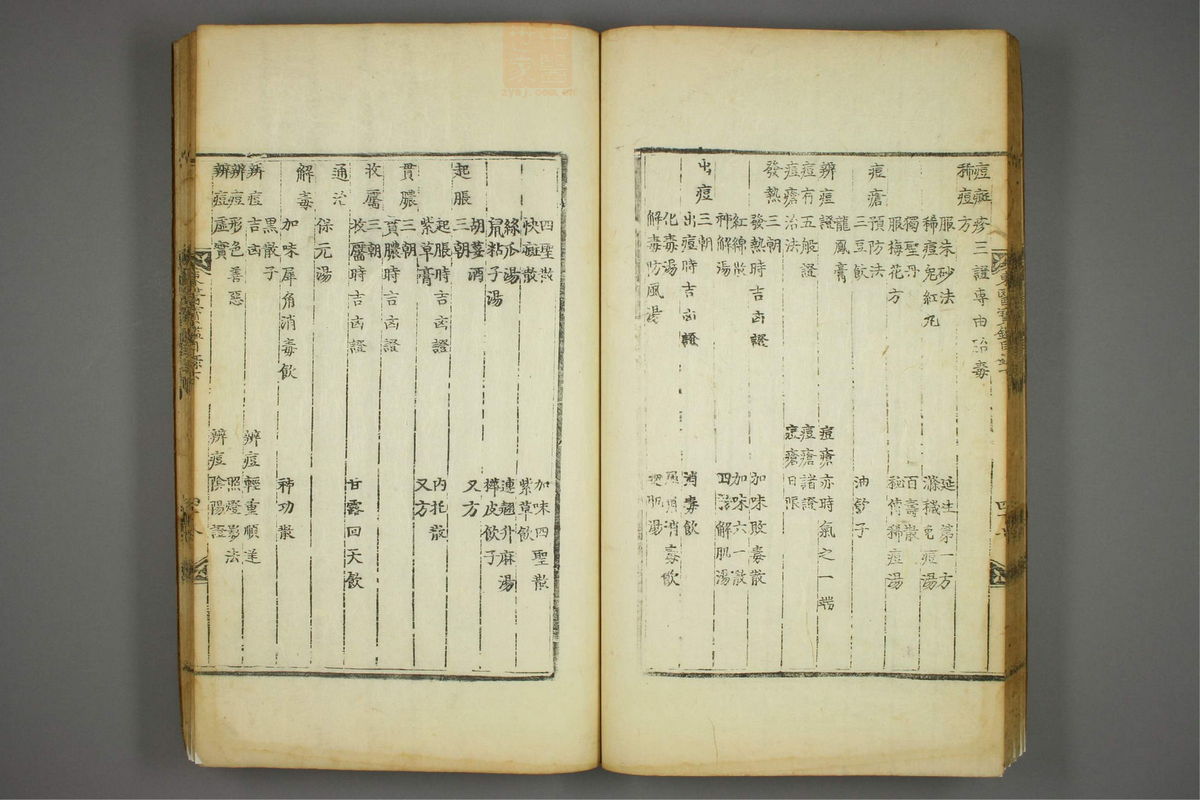 痘疹
痘疹三證專由胎毒
稀痘方
延生第一方
服朱砂法
滌穢免痘湯
稀痘兔紅丸
獨聖丹
百壽散
服梅花方
秘傳稀痘湯
痘瘡預防法
三豆飮
油飮子
龍鳳膏
辨痘證
痘瘡亦時氣之一端
痘有五般證
痘瘡諸證
痘瘡治法
痘瘡日限
發熱三朝
發熱時吉凶證
加味敗毒散
紅綿散
加味六一散
神解湯
四物解肌湯
出痘三朝
出痘時吉凶證
消毒飮
化毒湯
消毒飮
解毒防風湯
肌湯
四聖散
加味四聖散
快斑散
紫草飮
絲瓜湯
連翹升麻湯
鼠粘子湯
樺皮飮子
胡荽酒
又方
起脹三朝
起脹時吉凶證
內托散
紫草膏
又方
貫膿三朝
貫膿時吉凶證
收靨三朝
收靨時吉凶證
甘露回天飮
通治
保元湯
解毒
加味犀角消毒飮
神功散
黑散子
辨痘吉凶
辨痘輕重順逆
辨痘形色善惡
照燈影法
辨痘虛實
辨痘陰陽證